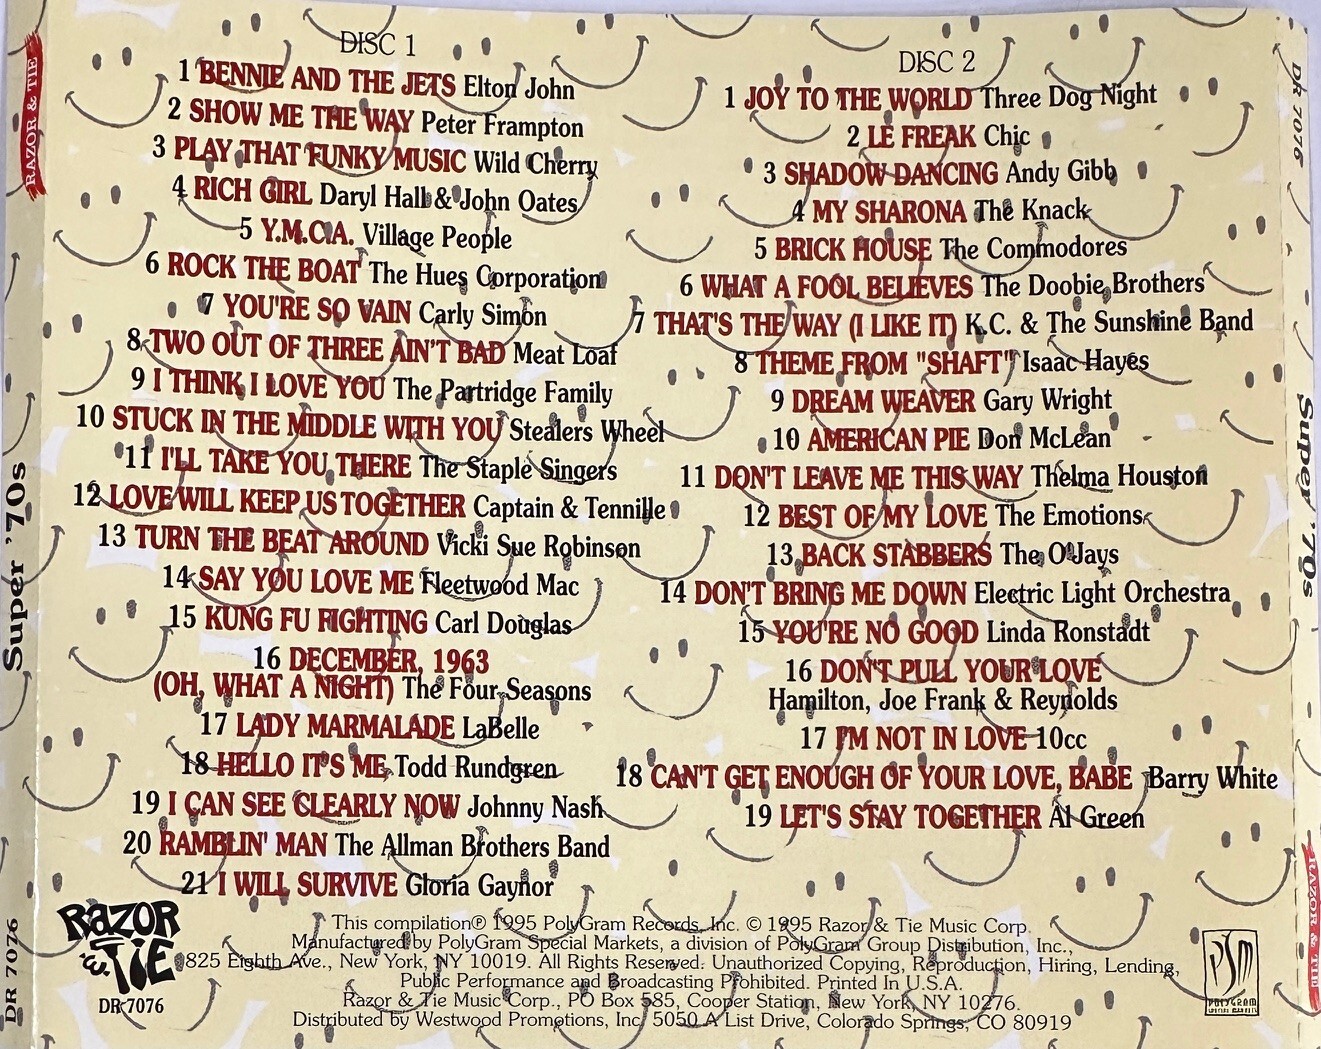 DISC 1
1 BENNIE AND THE JETS Elton John
2 SHOW ME THE WAY Peter Frampton
3 PLAY THAT FUNKY MUSIC Wild Cherry
4 RICH GIRL Daryl Hall & John Oates
5 Y.M.C.A. Village People
6 ROCK THE BOAT The Hues Corporation
7 YOU'RE SO VAIN Carly Simon
8 TWO OUT OF THREE AIN'T BAD Meat Loaf
9 I THINK I LOVE YOU The Partridge Family
10 STUCK IN THE MIDDLE WITH YOU Stealers Wheel
11 I'LL TAKE YOU THERE The Staple Singers
12 LOVE WILL KEEP US TOGETHER Captain & Tennille
13 TURN THE BEAT AROUND Vicki Sue Robinson
14 SAY YOU LOVE ME Fleetwood Mac
15 KUNG FU FIGHTING Carl Douglas
16 DECEMBER, 1963
(OH, WHAT A NIGHT) The Four Seasons
17 LADY MARMALADE LaBelle
18 HELLO IT'S ME Todd Rundgren
19 I CAN SEE CLEARLY NOW Johnny Nash
20 RAMBLIN' MAN The Allman Brothers Band
21 I WILL SURVIVE Gloria Gaynor
DISC 2
1 JOY TO THE WORLD Three Dog Night
2 LE FREAK Chic
3 SHADOW DANCING Andy Gibb
4 MY SHARONA The Knack
5 BRICK HOUSE The Commodores
6 WHAT A FOOL BELIEVES The Doobie Brothers
7 THAT'S THE WAY (I LIKE IT) K.C. & The Sunshine Band
8 THEME FROM "SHAFT" Isaac Hayes
9 DREAM WEAVER Gary Wright
10 AMERICAN PIE Don McLean
11 DON'T LEAVE ME THIS WAY Thelma Houston
12 BEST OF MY LOVE The Emotions
13 BACK STABBERS The O'Jays
14 DON'T BRING ME DOWN Electric Light Orchestra
15 YOU'RE NO GOOD Linda Ronstadt
16 DON'T PULL YOUR LOVE
Hamilton, Joe Frank & Reynolds
17 I'M NOT IN LOVE 10cc
18 CAN'T GET ENOUGH OF YOUR LOVE, BABE Barry White
19 LET'S STAY TOGETHER Al Green
This compilation ℗ 1995 PolyGram Records, Inc. © 1995 Razor & Tie Music Corp.
Manufactured by PolyGram Special Markets, a division of PolyGram Group Distribution, Inc.,
825 Eighth Ave., New York, NY 10019. All Rights Reserved. Unauthorized Copying, Reproduction, Hiring, Lending,
Public Performance and Broadcasting Prohibited. Printed In U.S.A.
Razor & Tie Music Corp., PO Box 585, Cooper Station, New York, NY 10276.
Distributed by Westwood Promotions, Inc. 5050 A List Drive, Colorado Springs, CO 80919
RAZOR
& TIE
DR 7076
PSM
POLYGRAM
SPECIAL MARKETS
RAZOR & TIE
Super '70s
DR 7076
DR 7076
Super '70s
RAZOR & TIE